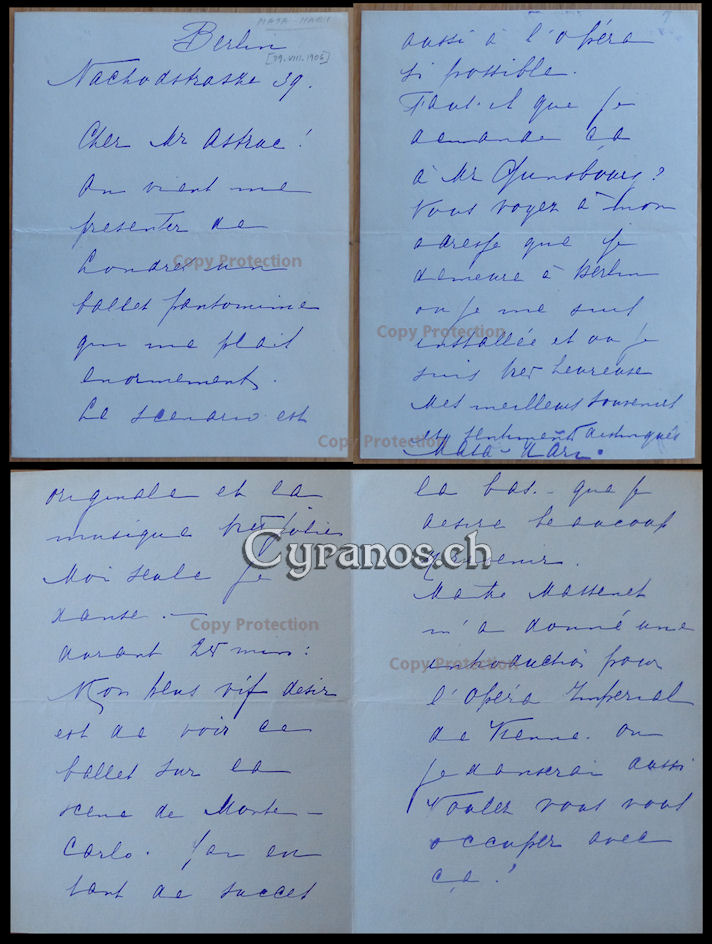 MATA-HARI
Berlin
[29.VIII.1906]
Nachodstrasse 39.
Cher Mr Astruc!
On vient me
presenter de
Londres un
ballet pantomime
qui me plait
enormement.
Le scenario est
originale et la
musique tres jolie
Moi seule je
danse. —
durant 25 min:
Mon plus vif desir
est de voir ce
ballet sur la
scene de Monte-
Carlo. J'ai eu
tant de succes
la bas. - que je
desire beaucoup
y revenir.
Maitre Massenet
m'a donné une
introduction pour
l'Opéra Imperial
de Vienne. ou
je danserai aussi
Voulez vous vous
occuper avec
ça!
aussi à l'opéra
si possible.
Faut-il que je
demande ça
à Mr Gunsbourg?
Vous voyez à mon
adresse que je
demeure à Berlin
ou je me suis
installée et ou je
suis tres heureuse
Mes meilleurs souvenirs
et sentiments distingués
Mata-Hari.
Copy Protection
Copy Protection
Copy Protection
Copy Protection
Copy Protection
Copy Protection
Cyranos.ch